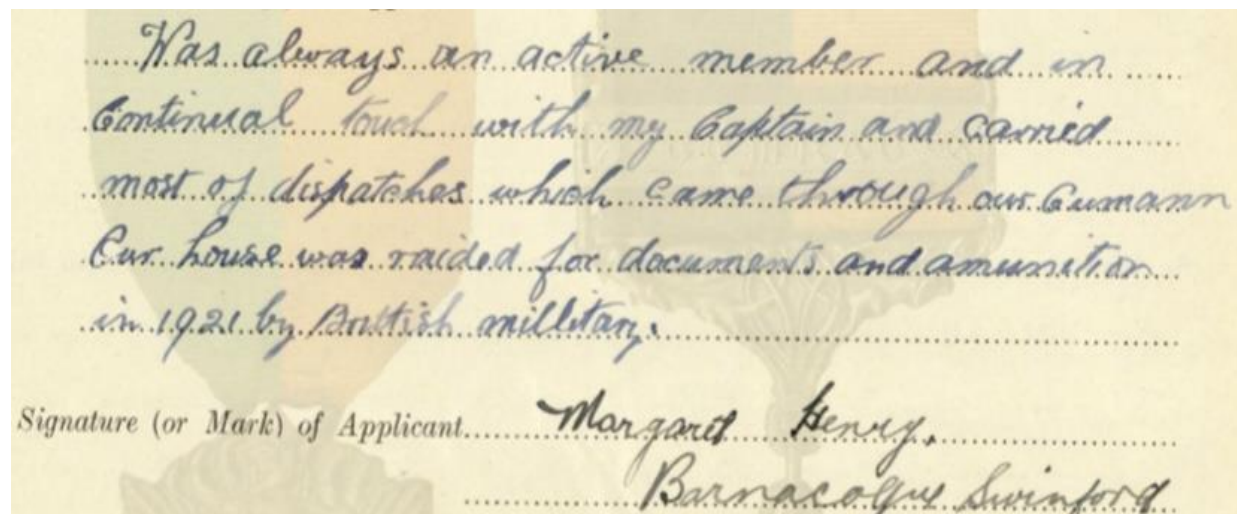 Was always an active member and in
Continual touch with my Captain and carried
most of dispatches which came through our Cumann
Our house was raided for documents and amunition
in 1921 by British millitary.
Signature (or Mark) of Applicant Margaret Henry,
Barnacogue Swinford